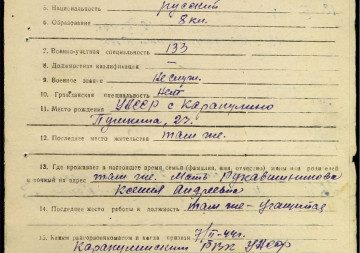 5. Национальность русский
6. Образование 8 кл.
7. Военно-учетная специальность 133
8. Должностная квалификация —
9. Военное зван-е не служ.
10. Гражданская специальность Нет
11. Место рождения УАССР с Каракулино
Пушкина, 23.
12. Последнее место жительства там же.
13. Где проживает в настоящее время семья (фамилия, имя, отчество) жены или родителей
и точный их адрес там же. Мать Рукавишникова
Ксения Андреевна
14. Последнее место работы и должность там же - учащийся
15. Каким райвоенкоматом и когда призван 7/II-44г.
Каракулинским РВК УАССР